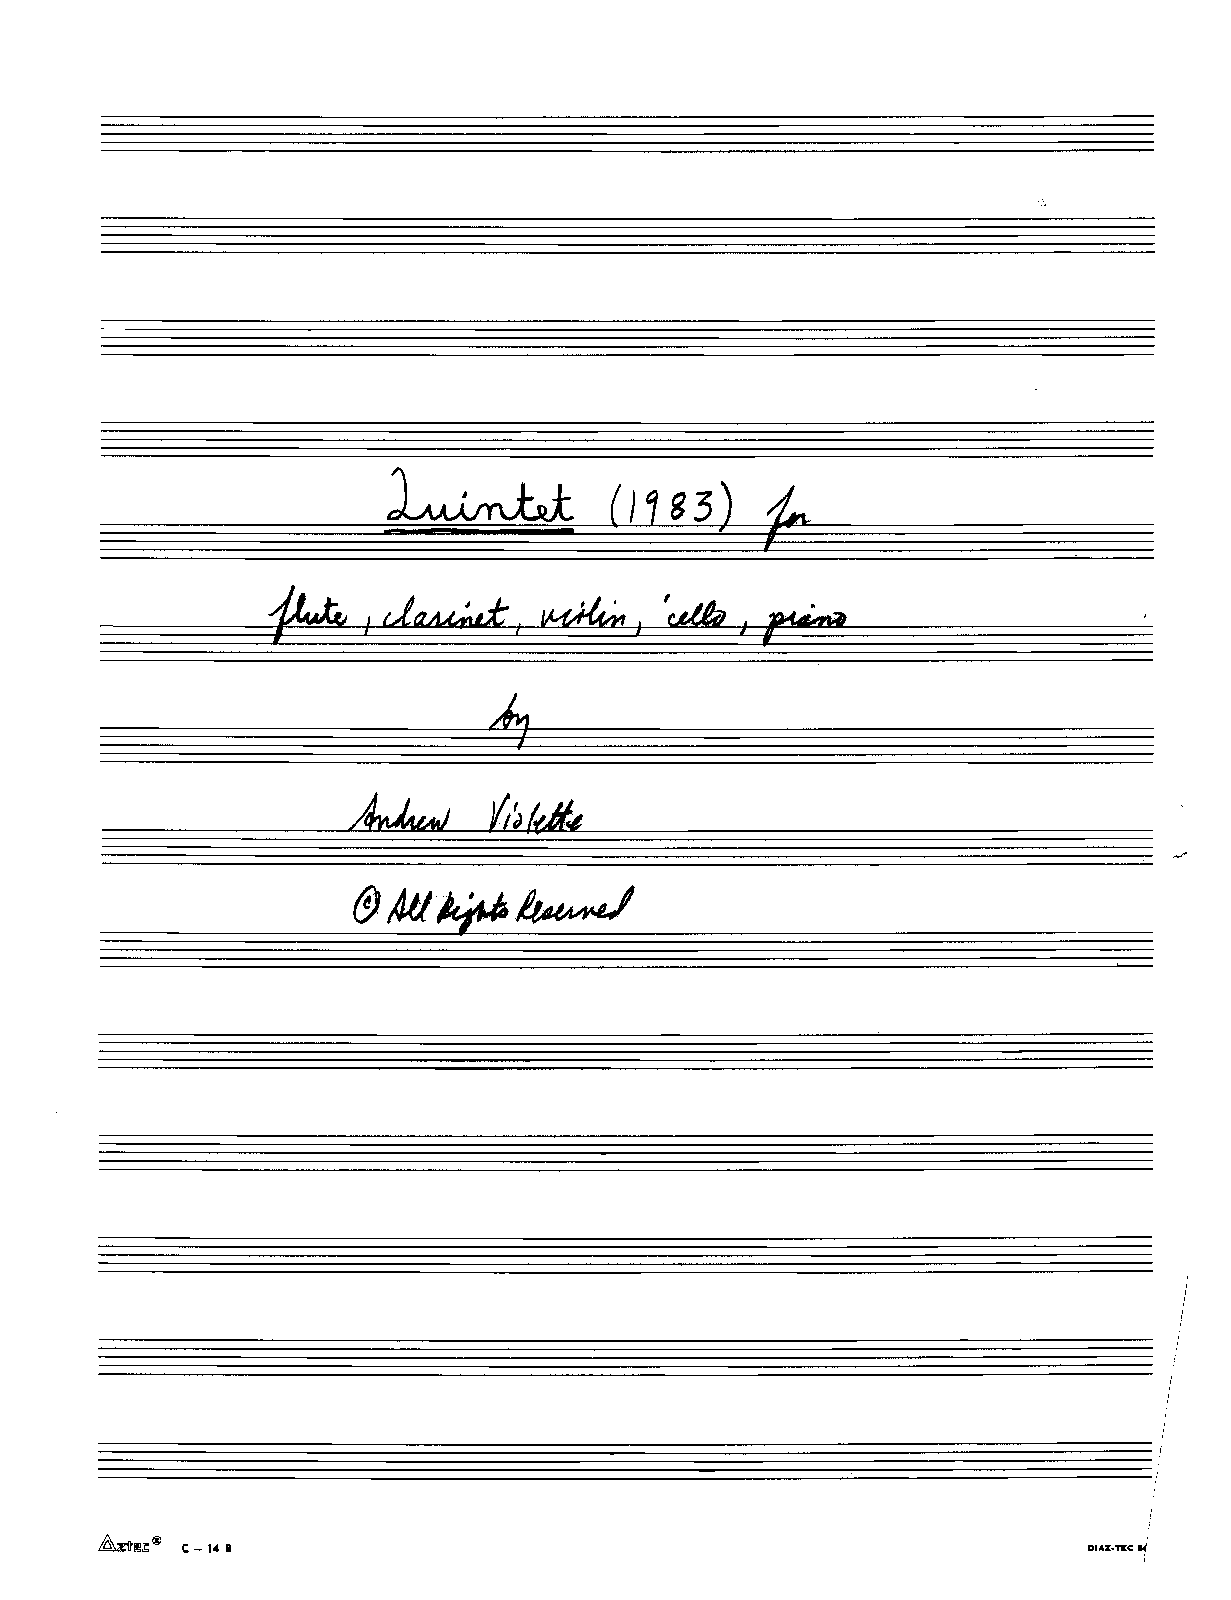 Quintet (1983) for
flute, clarinet, violin, 'cello, piano
by
Andrew Violette
© All Rights Reserved
Aztec® C – 14 B
DIAZ-TEC